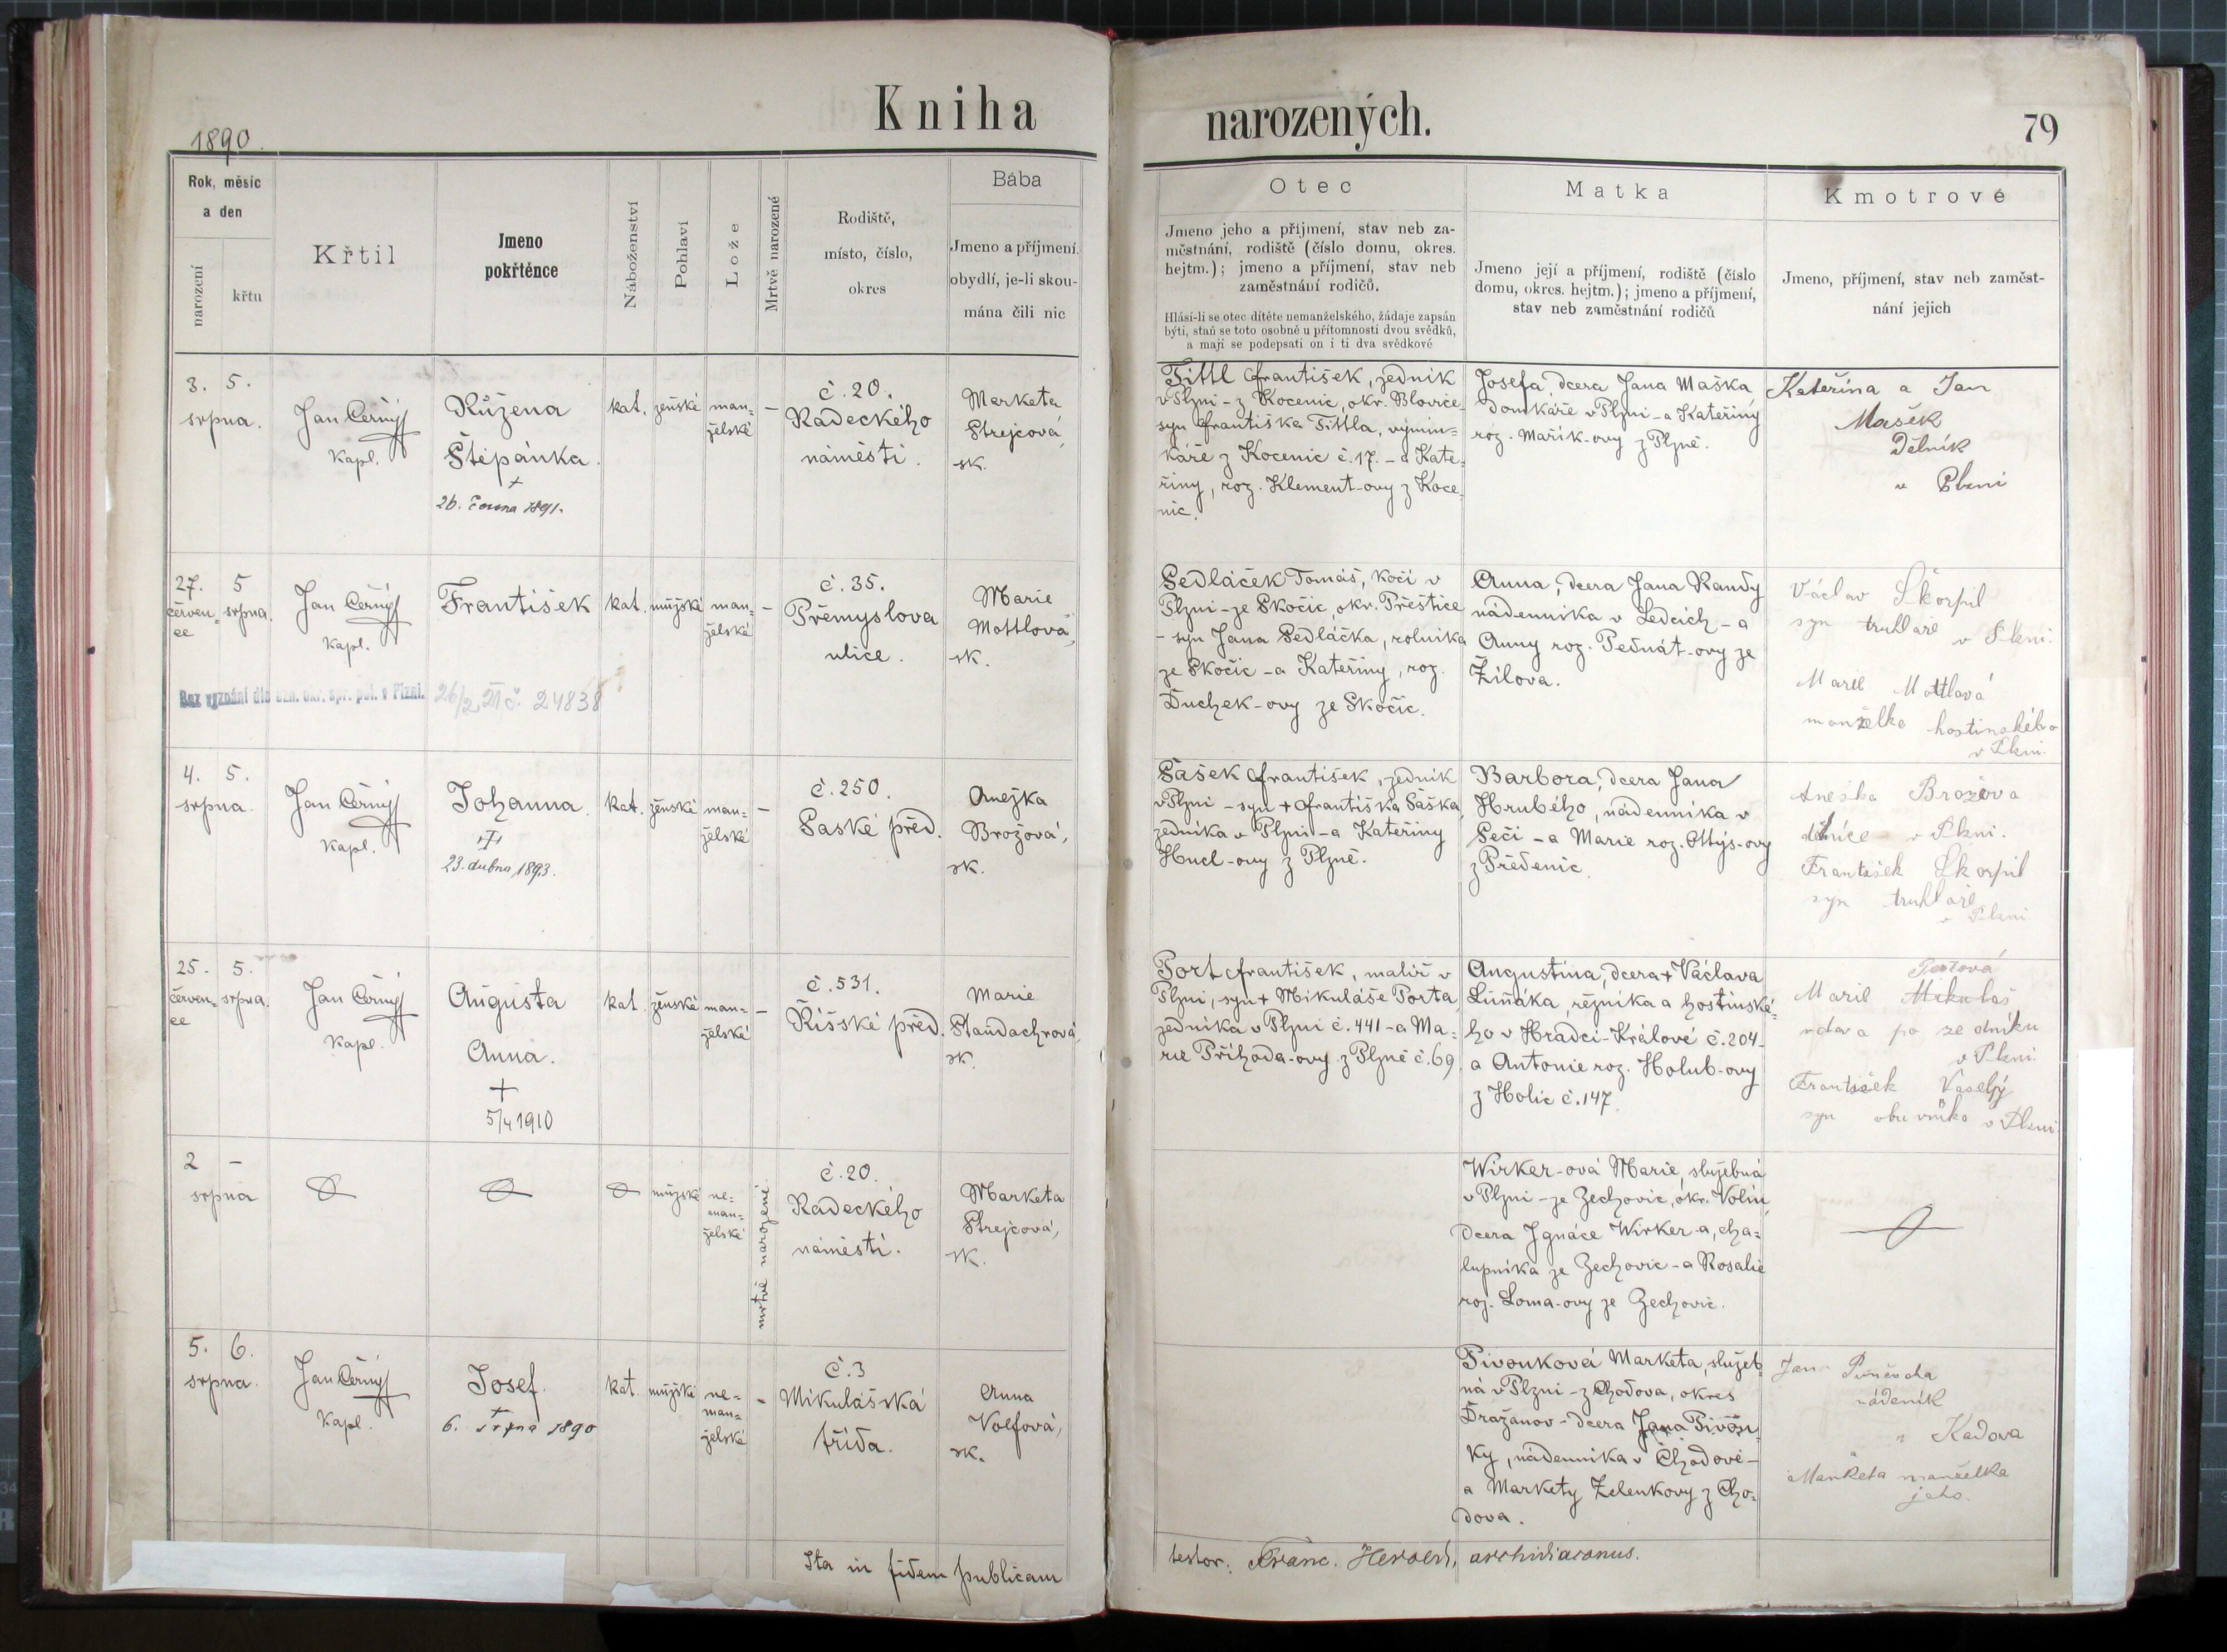 Kniha
narozených.
79
1890.
Rok, měsíc
a den
narození
křtu
Křtil
Jmeno
pokřtěnce
Náboženství
Pohlaví
Lože
Mrtvě narozené
Rodiště,
místo, číslo,
okres
Bába
Jmeno a příjmení.
obydlí, je-li skou-
mána čili nic
Otec
Jmeno jeho a příjmení, stav neb za-
městnání, rodiště (číslo domu, okres.
hejtm.); jmeno a příjmení, stav neb
zaměstnání rodičů.
Hlásí-li se otec dítěte nemanželského, žádaje zapsán
býti, staň se toto osobně u přítomnosti dvou svědků,
a mají se podepsati on i ti dva svědkové
Matka
Jmeno její a příjmení, rodiště (číslo
domu, okres. hejtm.); jmeno a příjmení,
stav neb zaměstnání rodičů
Kmotrové
Jmeno, příjmení, stav neb zaměst-
nání jejich
3. 5.
srpna.
Jan Černý
Kapl.
Růžena
Štěpánka.
+
26. června 1891.
kat.
ženské
man=
želské
–
č. 20.
Radeckého
náměstí.
Marketa
Strejcová,
sk.
Tittl František, zedník
v Plzni - z Kocenic, okr. Blovice
syn Františka Tittla, výmin=
káře z Kocenic č. 17. - a Kate=
řiny, roz. Klement-ovy z Koce=
nic.
Josefa dcera Jana Maška
domkáře v Plzni - a Kateřiny
roz. Mařík-ovy z Plzně.
Kateřina a Jan
Mašek
Dělník
v Plzni
27. 5
červen= srpna.
ce
Jan Černý
Kapl.
František
kat.
mužské
man=
želské
–
č. 35.
Přemyslova
ulice.
Marie
Mottlová,
sk.
Bez vyznání dle ozn. okr. spr. pol. v Plzni. 26/2 21 č. 24838
Sedláček Tomáš, kočí v
Plzni - ze Skočic, okr. Přeštice
- syn Jana Sedláčka, rolníka
ze Skočic - a Kateřiny, roz.
Duchek-ovy ze Skočic.
Anna, dcera Jana Kandy
nádenníka v Ledcích - a
Anny roz. Pednát-ovy ze
Žilova.
Václav Škorpil
syn truhláře v Plzni.
Marie Mottlová
manželka hostinského
v Plzni.
4. 5.
srpna.
Jan Černý
Kapl.
Johanna.
+
23. dubna 1893.
kat.
ženské
man=
želské
–
č. 250.
Saské před.
Anežka
Brožová,
sk.
Šašek František, zedník
v Plzni - syn + Františka Šaška
zedníka v Plzni - a Kateřiny
Hucl-ovy z Plzně.
Barbora, dcera Jana
Hrubého, nádenníka v
Seči - a Marie roz. Mtýs-ovy
z Předenic.
Anežka Brožova
dělnice v Plzni.
František Škorpil
syn truhláře
v Plzni
25. 5.
červen= srpna.
ce
Jan Černý
Kapl.
Augusta
Anna.
+
5/4 1910
kat.
ženské
man=
želské
–
č. 531.
Říšské před.
Marie
Standachrová,
sk.
Port František, malíř v
Plzni, syn + Mikuláše Porta
zedníka v Plzni č. 441 - a Ma=
rie Příhoda-ovy z Plzně č. 69.
Augustina, dcera + Václava
Luňáka, řezníka a hostinské=
ho v Hradci-Králové č. 204 -
a Antonie roz. Holub-ovy
z Holic č. 147.
Portová
Marie Mikuláš
vdova po zedníku
v Plzni.
František Veselý
syn obuvníka v Plzni
2 –
srpna
mužské
ne=
man=
želské
mrtvě narozené
č. 20.
Radeckého
náměstí.
Marketa
Strejcová,
sk.
Wirker-ová Marie, služebná
v Plzni - ze Zechovic, okr. Volin,
dcera Ignáce Wirker-a, cha=
lupníka ze Zechovic - a Rosalie
roz. Loma-ovy ze Zechovic.
5. 6.
srpna.
Jan Černý
Kapl.
Josef.
+
6. srpna 1890
kat.
mužské
ne=
man=
želské
-
č. 3
Mikulášská
třída.
Anna
Volfová,
sk.
Pivonková Marketa, služeb=
ná v Plzni - z Chodova, okres
Dražanov - dcera Jana Pivoň=
ky, nádenníka v Chodově -
a Markety Zelenkovy z Cho=
dova.
Jan
nádeník
z Kadova
a
Markéta manželka
jeho.
Ita in fidem publicam
testor: Franc. Herold, archidiaconus.